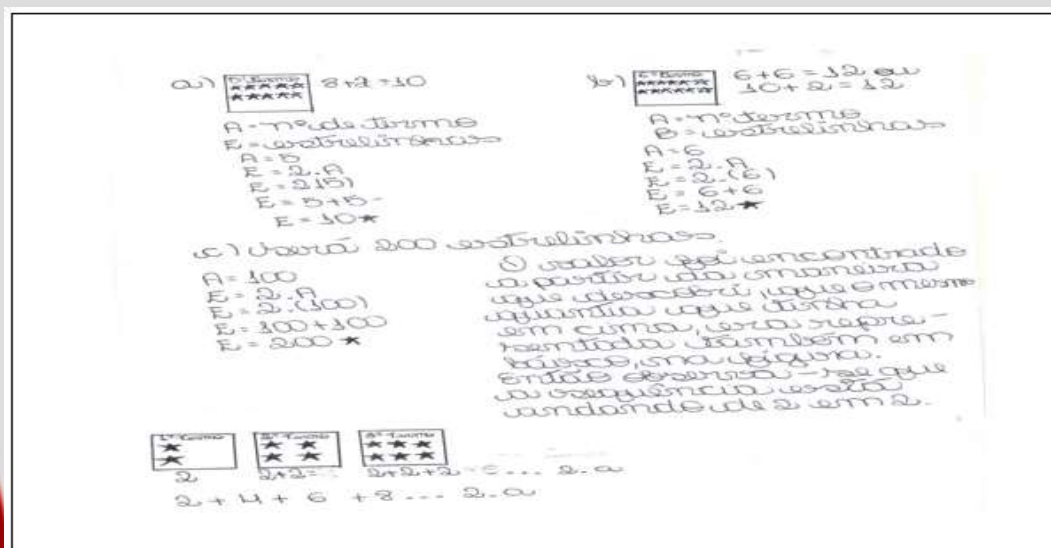 a) 5º Termo 8+2=10
A = nº de termo
E = estrelinhas
A = 5
E = 2.A
E = 2(5)
E = 5+5
E = 10★
b) 6º Termo 6+6=12 ou
10+2=12
A = nº termo
B = estrelinhas
A = 6
E = 2.A
E = 2.(6)
E = 6+6
E = 12★
c) Será 200 estrelinhas.
A = 100
E = 2.A
E = 2.(100)
E = 100+100
E = 200★
O valor foi encontrado
a partir da maneira
que descobri, que o mesmo
quantia que tinha
em cima, era repre-
sentada também em
báixo, na figura.
Então observa-se que
a sequência está
andando de 2 em 2.
1º Termo 2º Termo 3º Termo
2 2+2= 2+2+2 ... 2.a
2+4+6+8... 2.a